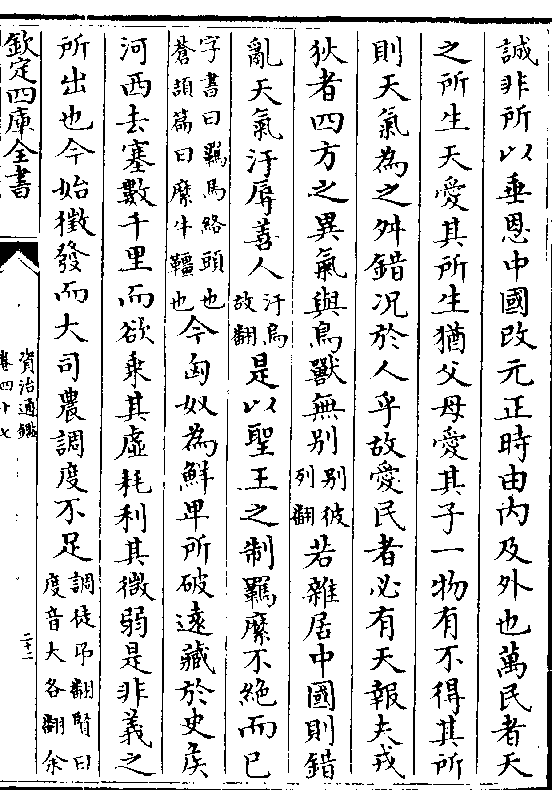 誠非所以垂恩中國改元正時由内及外也萬民者天
之所生天愛其所生猶父母愛其子一物有不得其所
則天氣為之舛錯况於人乎故愛民者必有天報夫戎
狄者四方之異氣與鳥獸無别别彼列翻若雜居中國則錯
亂天氣汙辱善人汙烏故翻是以聖王之制羈縻不絶而已
字書曰羈馬絡頭也蒼頡篇曰縻牛韁也今匈奴為鮮卑所破遠藏於史矦
河西去塞數千里而欲乗其虚耗利其微弱是非義之
所出也今始徴發而大司農調度不足調徒弔翻賢曰度音大各翻余
欽定四庫全書
資治通鑑
卷四十七
二十二